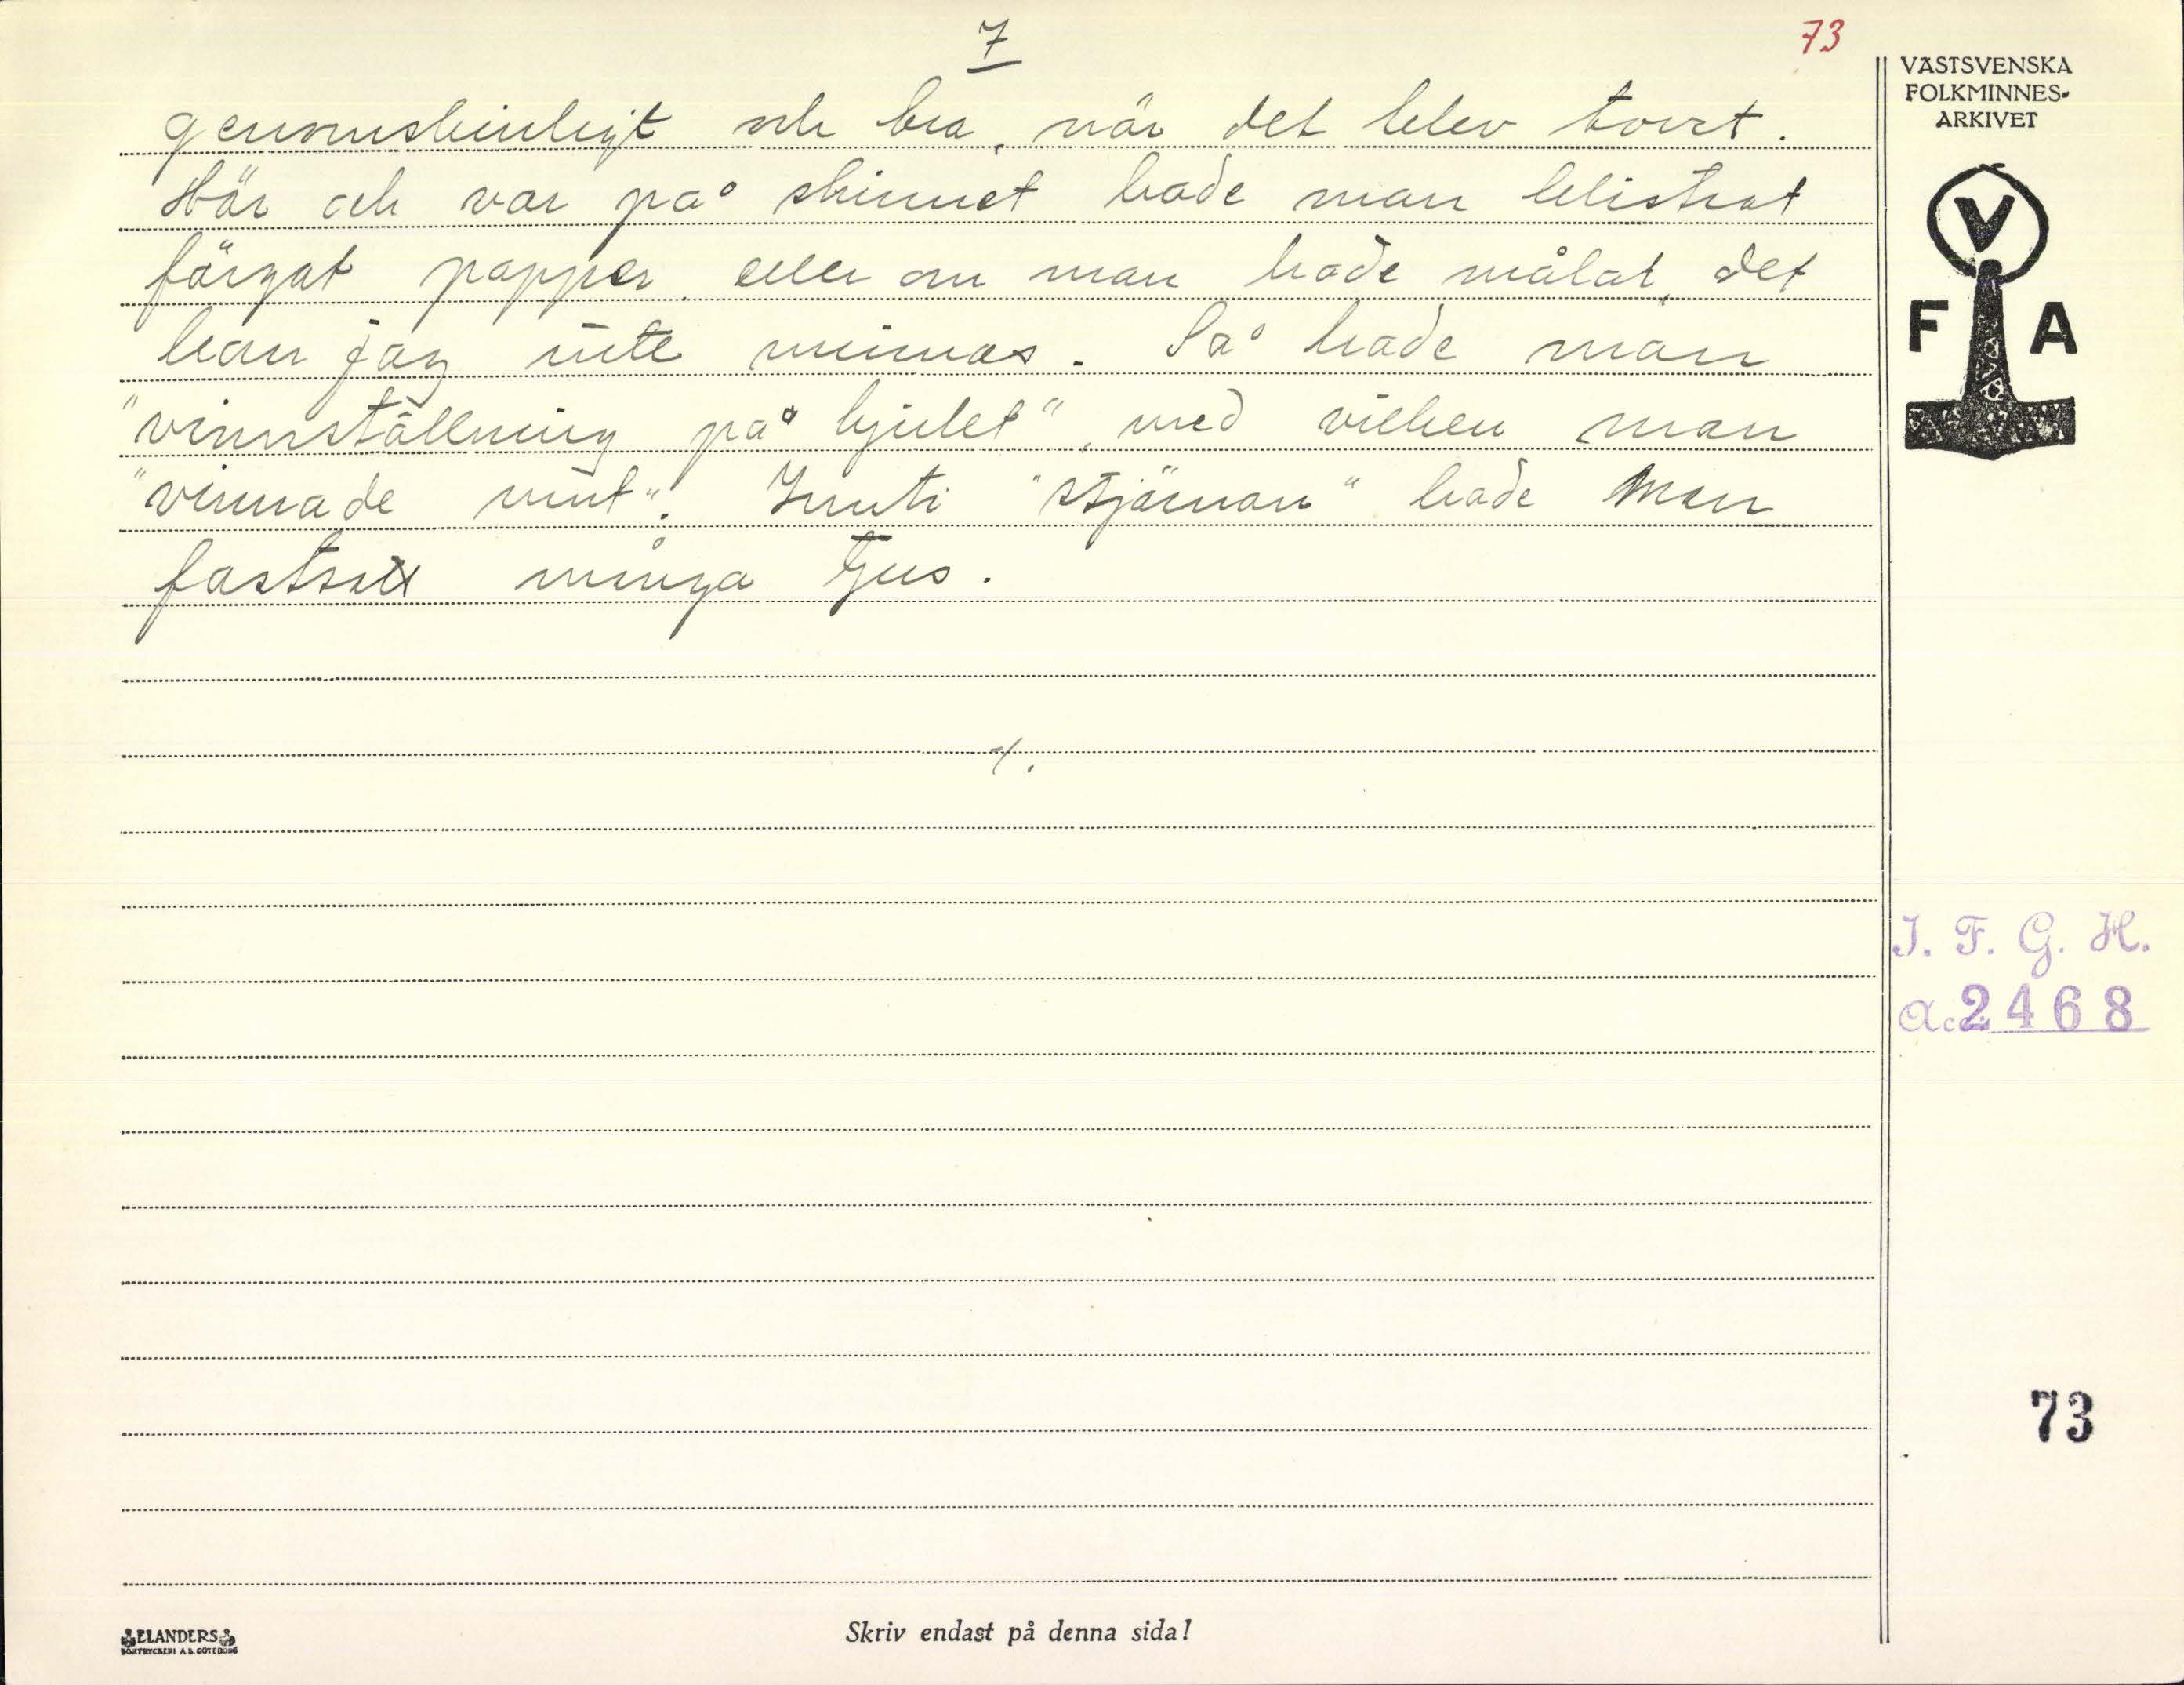 7
73
genomskinligt och bra, när det blev torrt.
Här och var på skinnet hade man klistrat
färgat papper, eller om man hade målat, det
kan jag inte minnas. Så hade man
"vinnställning på hjulet", med vilken man
"vinnade runt". Inuti "stjärnan" hade man
fastsatt många ljus.
VÄSTSVENSKA
FOLKMINNES-
ARKIVET
V
F A
I. F. G. H.
Acc. 2468
73
Skriv endast på denna sida!
ELANDERS
BOKTRYCKERI A.B. GÖTEBORG